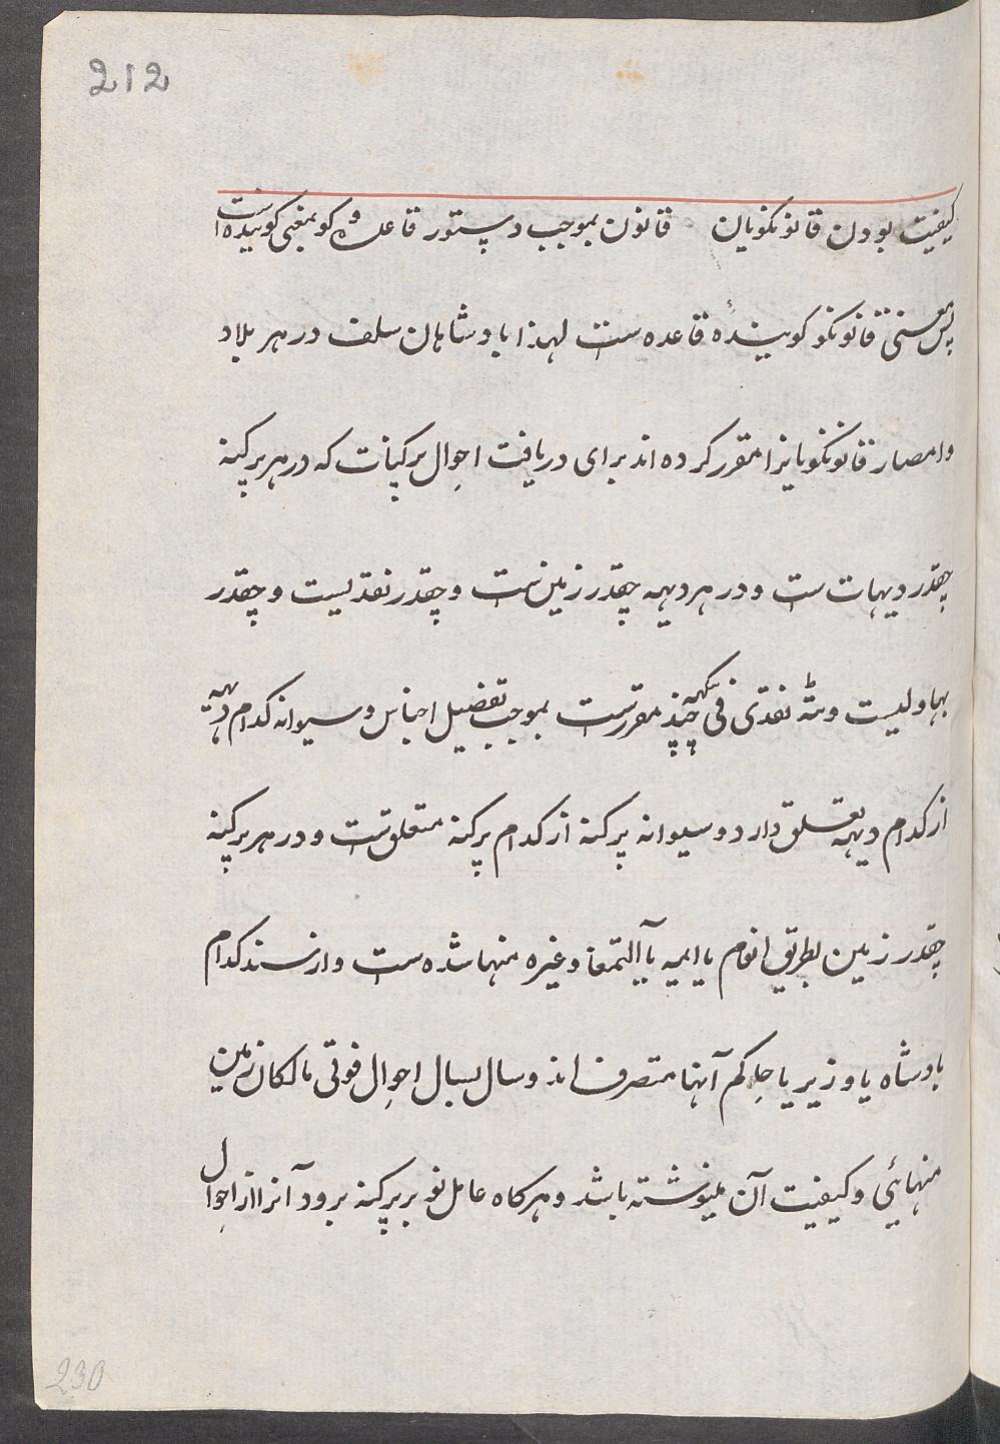 212
کیفیت بودن قانونکویان قانون بموجب دستور قاعده و کو بمعنی کوینده است
پس معنی قانونکو کویندهٔ قاعده ست لهذا بادشاهان سلف در هر بلاد
و امصار قانونکویانرا مقرر کرده اند برای دریافت احوال پرکنات که در هر پرکنه
چقدر دیهات ست و در هر دیهه چقدر زمین ست و چقدر نقدیست و چقدر
بهاولیست و پٹه نقدی فی بیکهه چند مقررست بموجب تفضیل اجناس و سیوانه کدام دیهه
از کدام دیهه تعلق دارد و سیوانه پرکنه از کدام پرکنه متعلق ست و در هر پرکنه
چقدر زمین بطریق انعام یا ایمه یا آلتمغا و غیره منها شده ست و از سند کدام
بادشاه یا وزیر یا حاکم آنها متصرف اند و سال بسال احوال فوتی مالکان زمین
منهائی و کیفیت آن مینوشته باشد و هرکاه عامل نو بر پرکنه برود آنرا از احوال
230